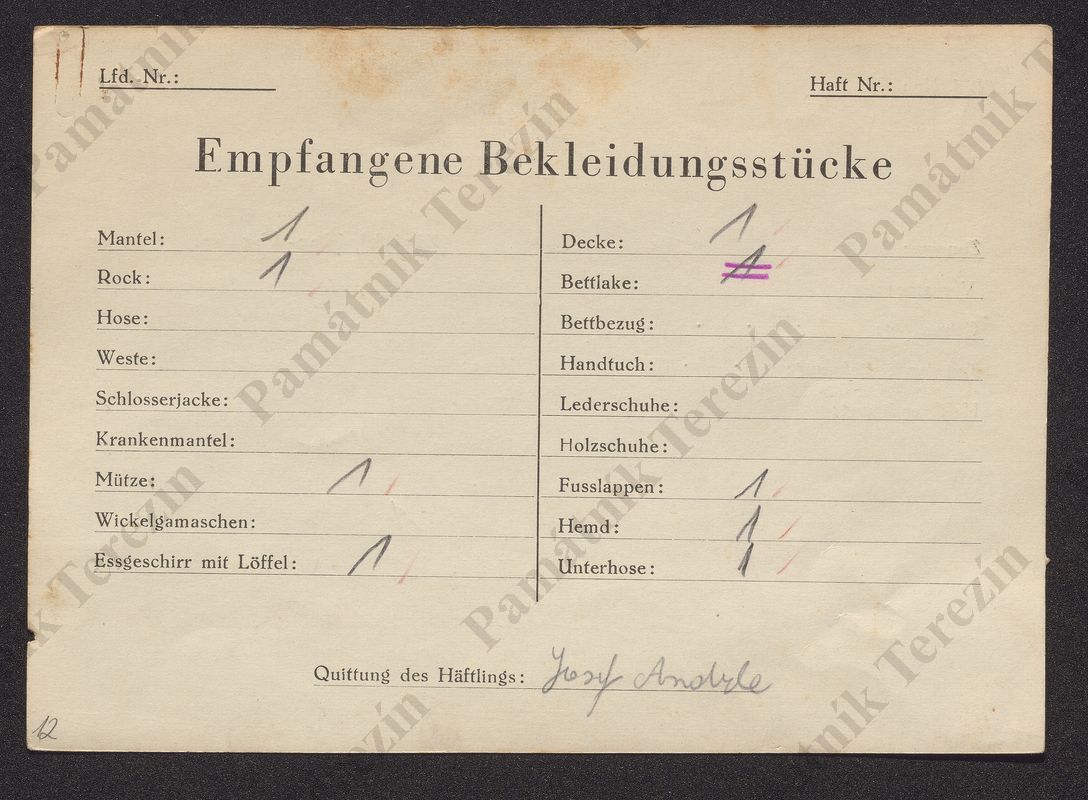 Lfd. Nr.:
Haft Nr.:
Empfangene Bekleidungsstücke
Mantel: 1
Rock: 1
Hose:
Weste:
Schlosserjacke:
Krankenmantel:
Mütze: 1
Wickelgamaschen:
Essgeschirr mit Löffel: 1
Decke: 1
Bettlake: 1
Bettbezug:
Handtuch:
Lederschuhe:
Holzschuhe:
Fusslappen: 1
Hemd: 1
Unterhose: 1
Quittung des Häftlings: Josef Andrle
12
Památník Terezín